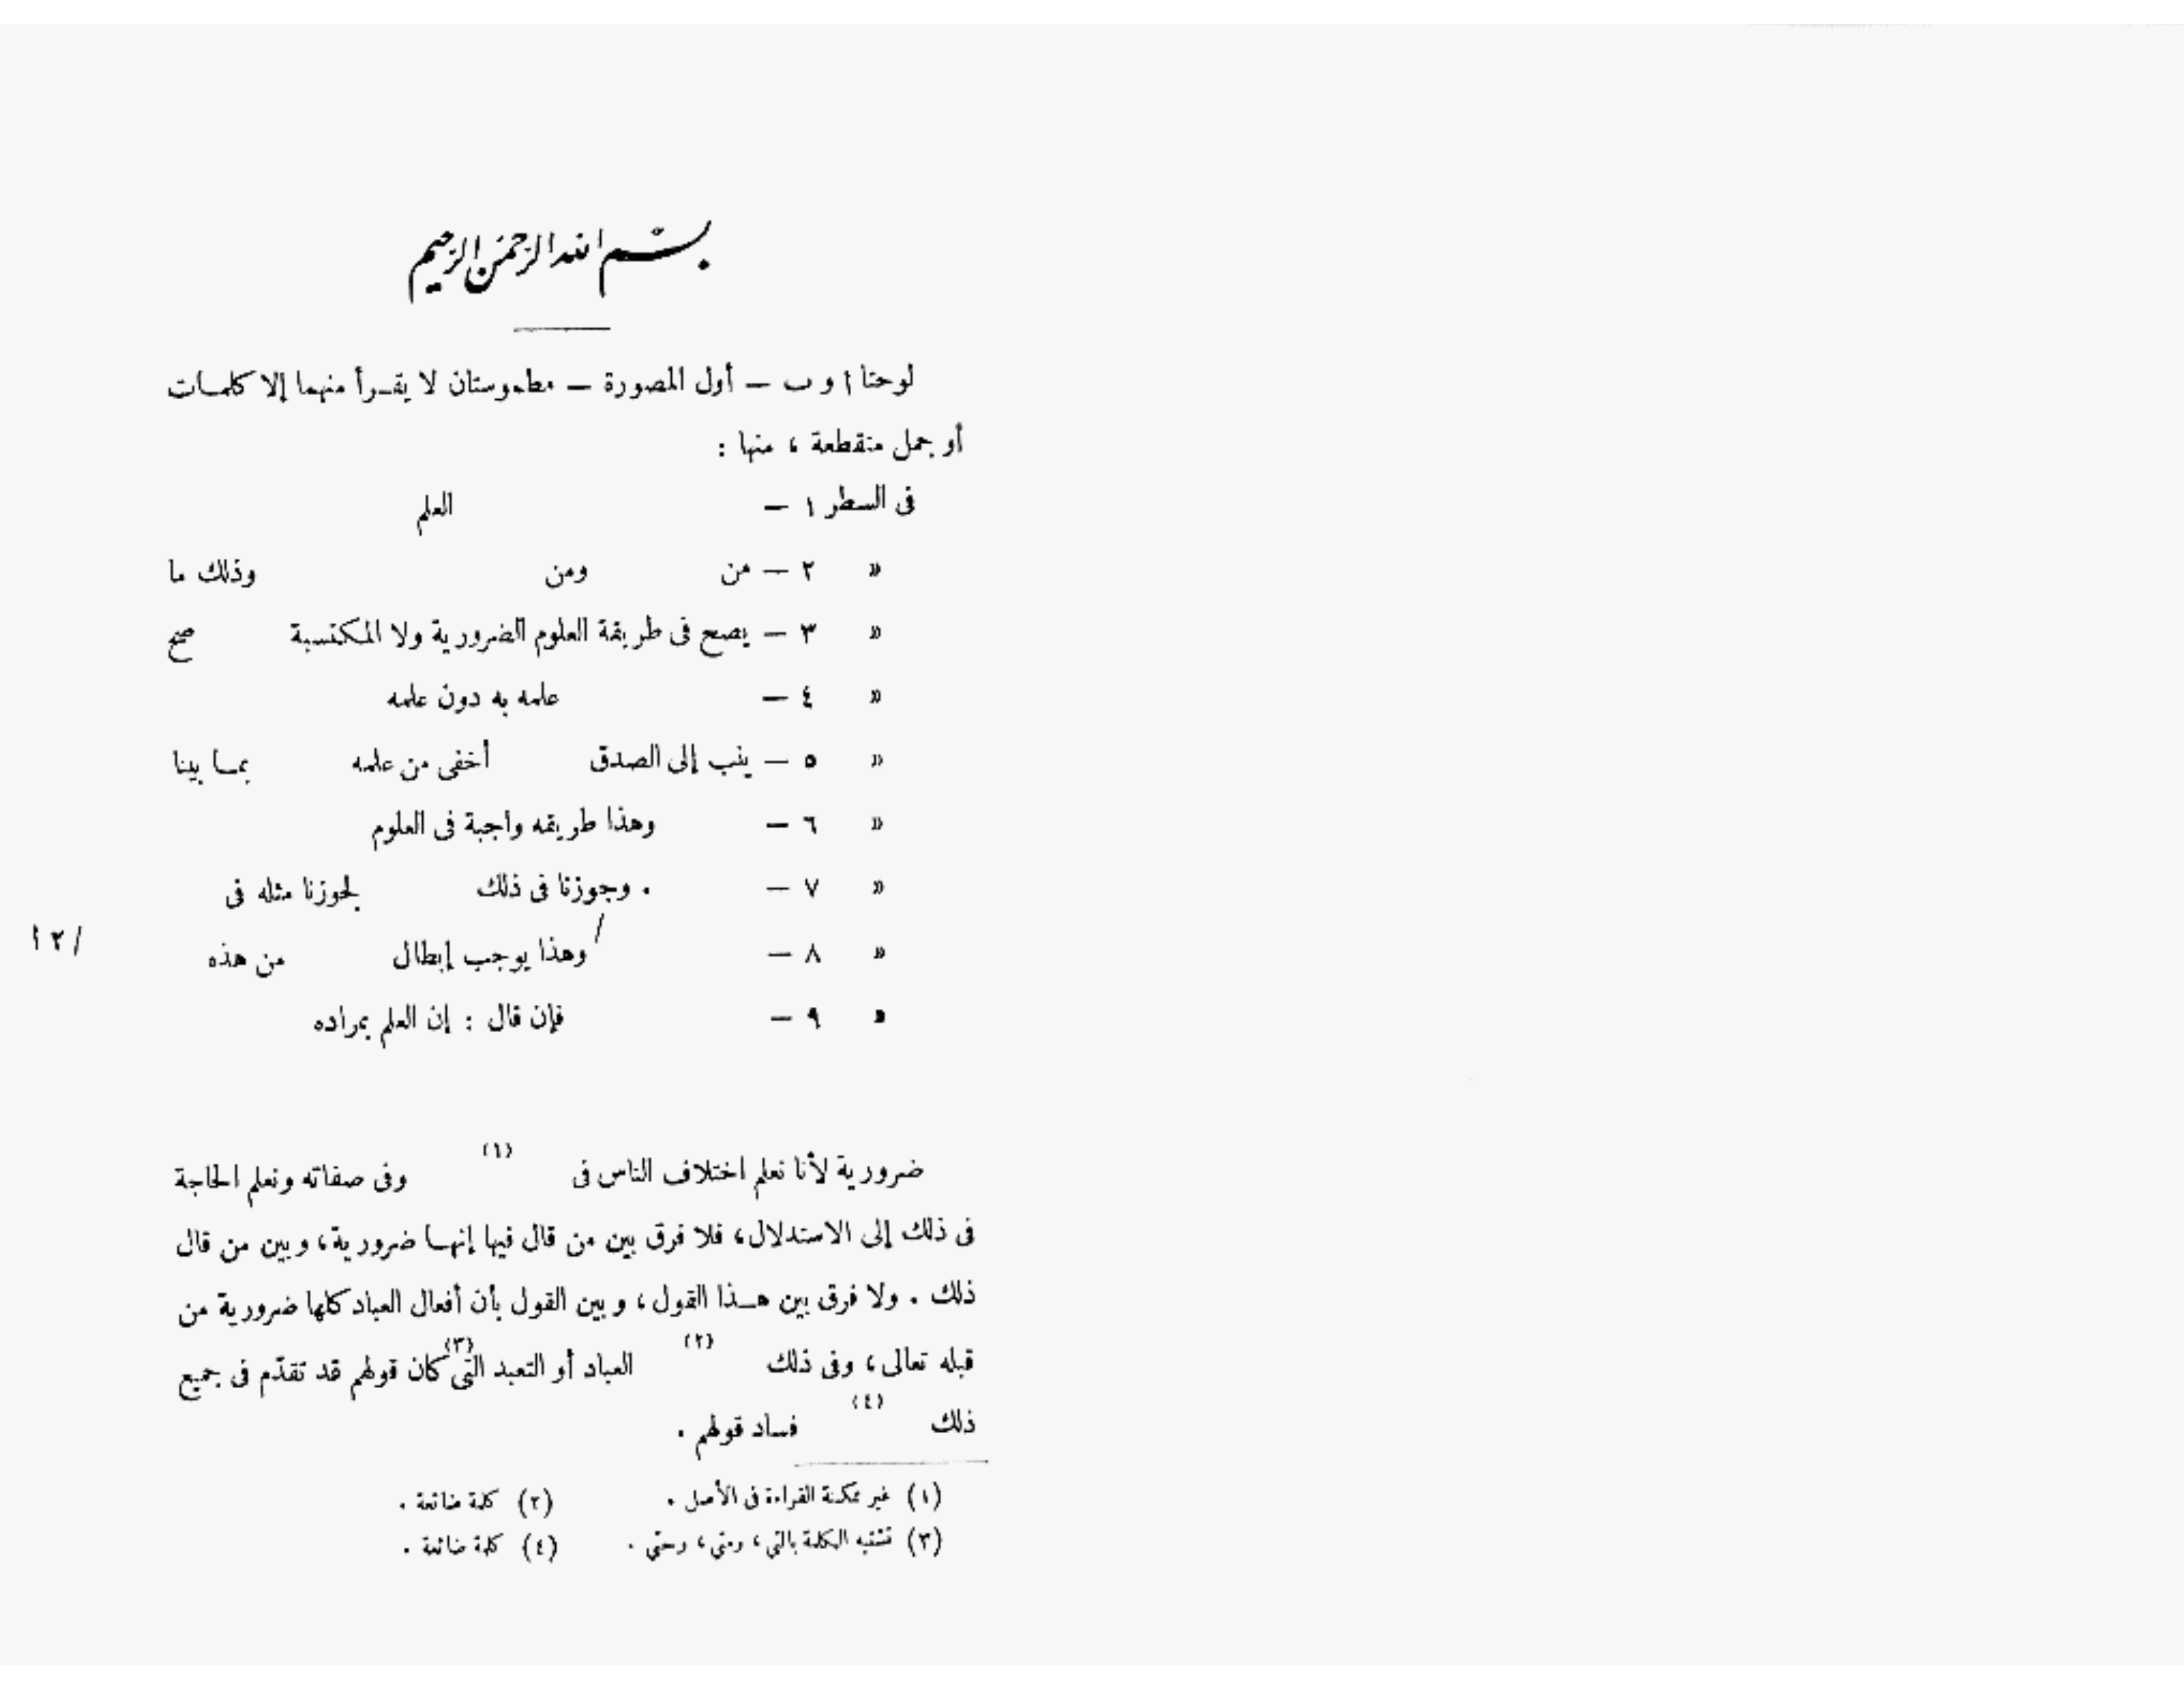 بسم الله الرحمن الرحيم
لوحتا أ و ب — أول المصورة — مطموستان لا يقـرأ منهما إلا كلمـات
أو جمل منقطعة ، منها :
فى السطر ١ — العلم
« ٢ — من ومن وذلك ما
« ٣ — يصح فى طريقة العلوم الضرورية ولا المكتسبة صح
« ٤ — علمه به دون علمه
« ٥ — ينب إلى الصدق أخفى من علمه بمـا بينا
« ٦ — وهذا طريقه واجبة فى العلوم
« ٧ — . وجوزنا فى ذلك لجوزنا مثله فى
« ٨ — / وهذا يوجب إبطال من هذه / ٢ أ
« ٩ — فإن قال : إن العلم بمراده
ضرورية لأنا نعلم اختلاف الناس فى (١) وفى صفاته ونعلم الحاجة
فى ذلك إلى الاستدلال، فلا فرق بين من قال فيها إنهـا ضرورية، وبين من قال
ذلك . ولا فرق بين هـذا القول ، وبين القول بأن أفعال العباد كلها ضرورية من
قبله تعالى، وفى ذلك (٢) العباد أو التعبد التى(٣) كان قولهم قد تقدّم فى جميع
ذلك (٤) فساد قولهم .
(١) غير ممكنة القراءة فى الأصل . (٢) كلمة ضائعة .
(٣) تشتبه الكلمة بالتي ، ومتي ، وحتي . (٤) كلمة ضائعة .